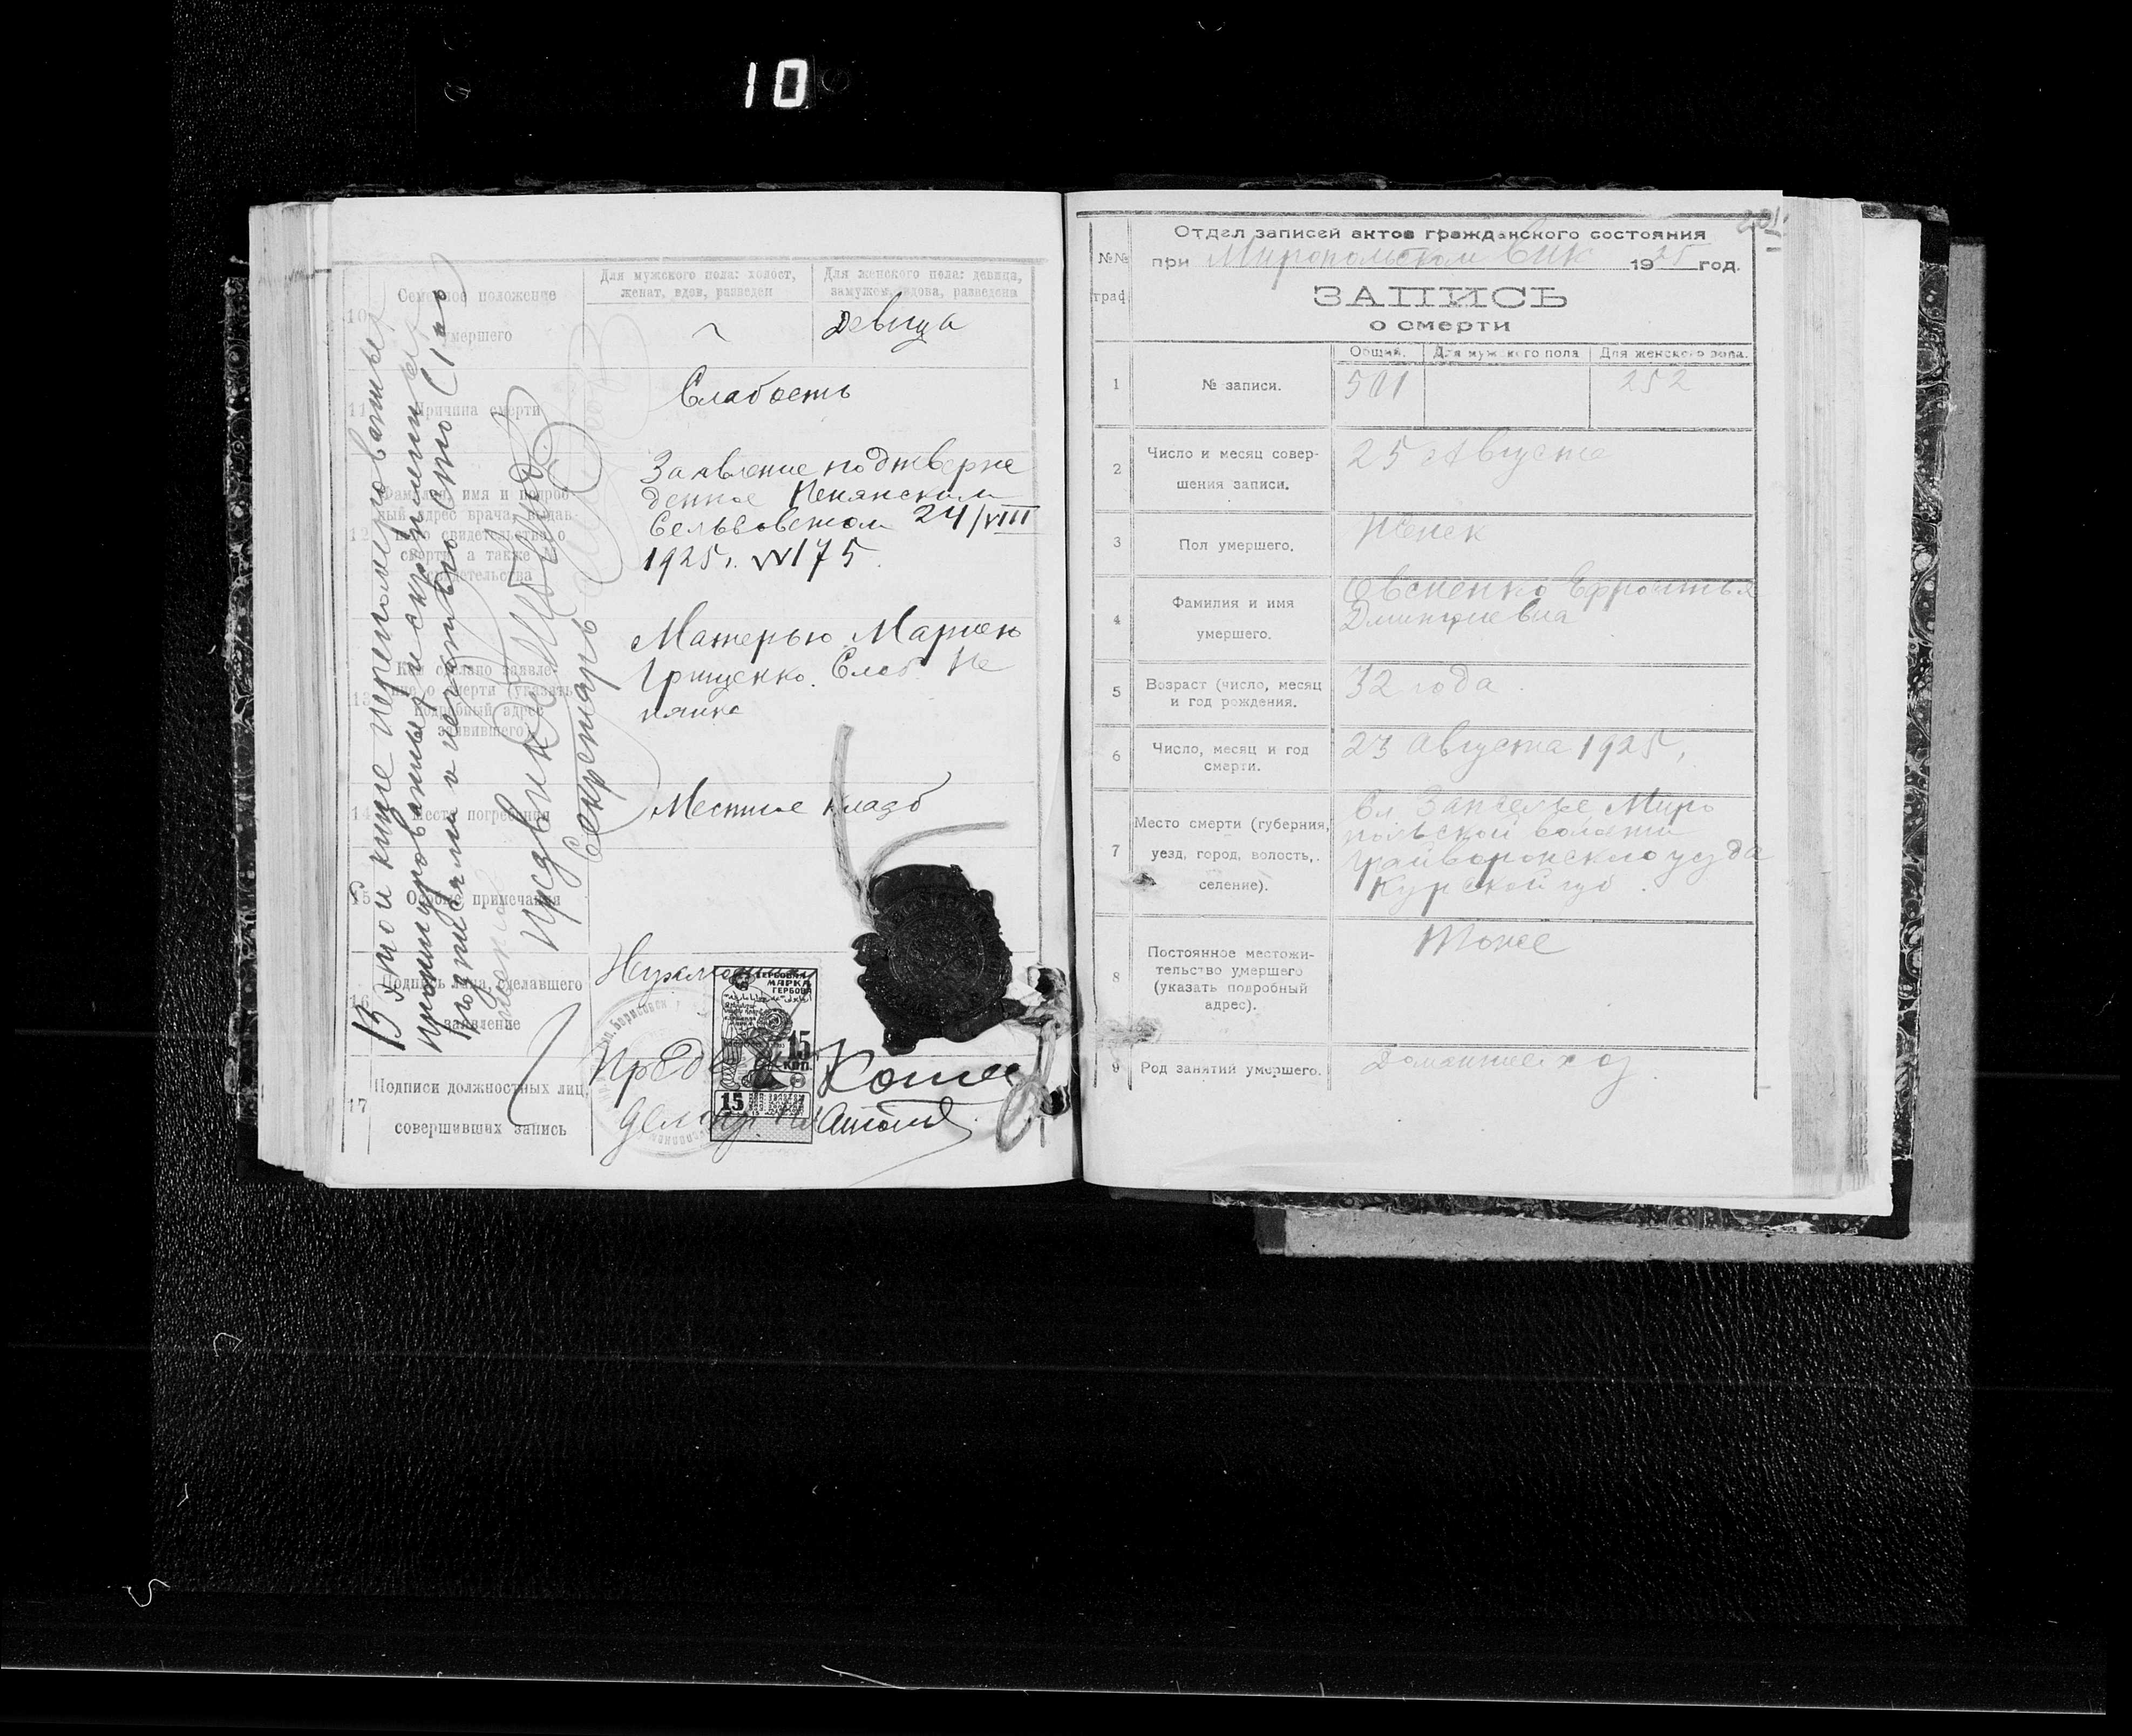 10
10
Семейное положение
умершего
Для мужского пола: холост,
женат, вдов, разведен
Для женского пола: девица,
замужем, вдова, разведена
Девица
11
Причина смерти
Слабость
12
Фамилия, имя и подроб-
ный адрес врача, выдав-
свидетельство о
смерти, а также №
свидетельства
Заявление подтверж
денное Пенянским
Сельсоветом 24/VIII
1925г. №175
13
Кем сделано заявле-
ние о смерти (указать
подробный адрес
заявившего)
Матерью Марией
Грищенко. Слоб. Пе
нянка
14
Место погребения
Местное кладб
15
Особые примечания
16
Подпись лица, сделавшего
заявление
17
Подписи должностных лиц,
совершивших запись
ГЕРБОВАЯ
МАРКА
15
КОП.
15
В этой книге перенумерованные
прошнурованные и скрепленные
подписями и печатью сто (100)
Секретарь
201
№№
граф.
Отдел записей актов гражданского состояния
при Миропольском Вик 1925 год.
ЗАПИСЬ
о смерти
1
№ записи.
Общий.
Для мужского пола
Для женского пола.
501
252
2
Число и месяц совер-
шения записи.
25 Августа
3
Пол умершего.
Женск
4
Фамилия и имя
умершего.
Дмитриевна
5
Возраст (число, месяц
и год рождения.
32 года
6
Число, месяц и год
смерти.
23 Августа 1925г
7
Место смерти (губерния,
уезд, город, волость,.
селение).
Сл. Запселье Миро
польской волости
Грайворонского уезда
Курской губ.
8
Постоянное местожи-
тельство умершего
(указать подробный
адрес).
Тоже
9
Род занятий умершего.
Домашнее хоз